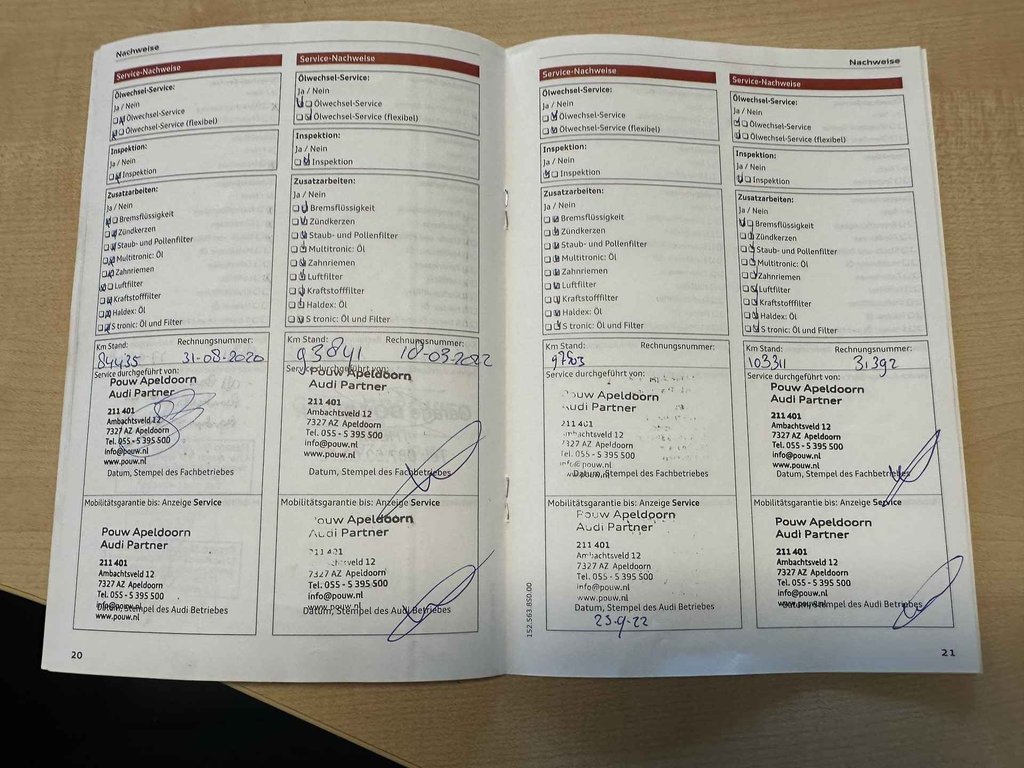 Nachweise
Service-Nachweise
Ölwechsel-Service:
Ja / Nein
Ölwechsel-Service
Ölwechsel-Service (flexibel)
Inspektion:
Ja / Nein
Inspektion
Zusatzarbeiten:
Ja / Nein
Bremsflüssigkeit
Zündkerzen
Staub- und Pollenfilter
Multitronic: Öl
Zahnriemen
Luftfilter
Kraftstofffilter
Haldex: Öl
S tronic: Öl und Filter
Km Stand: Rechnungsnummer:
84435 31-08-2020
Service durchgeführt von:
Pouw Apeldoorn
Audi Partner
211 401
Ambachtsveld 12
7327 AZ Apeldoorn
Tel. 055 - 5 395 500
info@pouw.nl
www.pouw.nl
Datum, Stempel des Fachbetriebes
Mobilitätsgarantie bis: Anzeige Service
Pouw Apeldoorn
Audi Partner
211 401
Ambachtsveld 12
7327 AZ Apeldoorn
Tel. 055 - 5 395 500
info@pouw.nl
Datum, Stempel des Audi Betriebes
www.pouw.nl
20
Service-Nachweise
Ölwechsel-Service:
Ja / Nein
Ölwechsel-Service
Ölwechsel-Service (flexibel)
Inspektion:
Ja / Nein
Inspektion
Zusatzarbeiten:
Ja / Nein
Bremsflüssigkeit
Zündkerzen
Staub- und Pollenfilter
Multitronic: Öl
Zahnriemen
Luftfilter
Kraftstofffilter
Haldex: Öl
S tronic: Öl und Filter
Km Stand: Rechnungsnummer:
93841 10-03-2022
Service durchgeführt von:
Pouw Apeldoorn
Audi Partner
211 401
Ambachtsveld 12
7327 AZ Apeldoorn
Tel. 055 - 5 395 500
info@pouw.nl
www.pouw.nl
Datum, Stempel des Fachbetriebes
Mobilitätsgarantie bis: Anzeige Service
Pouw Apeldoorn
Audi Partner
211 401
Ambachtsveld 12
7327 AZ Apeldoorn
Tel. 055 - 5 395 500
info@pouw.nl
www.pouw.nl
Datum, Stempel des Audi Betriebes
Nachweise
Service-Nachweise
Ölwechsel-Service:
Ja / Nein
Ölwechsel-Service
Ölwechsel-Service (flexibel)
Inspektion:
Ja / Nein
Inspektion
Zusatzarbeiten:
Ja / Nein
Bremsflüssigkeit
Zündkerzen
Staub- und Pollenfilter
Multitronic: Öl
Zahnriemen
Luftfilter
Kraftstofffilter
Haldex: Öl
S tronic: Öl und Filter
Km Stand: Rechnungsnummer:
97503
Service durchgeführt von:
Pouw Apeldoorn
Audi Partner
211 401
Ambachtsveld 12
7327 AZ Apeldoorn
Tel. 055 - 5 395 500
info@pouw.nl
www.pouw.nl
Datum, Stempel des Fachbetriebes
Mobilitätsgarantie bis: Anzeige Service
Pouw Apeldoorn
Audi Partner
211 401
Ambachtsveld 12
7327 AZ Apeldoorn
Tel. 055 - 5 395 500
info@pouw.nl
www.pouw.nl
Datum, Stempel des Audi Betriebes
23-9-22
152.563.850.00
Service-Nachweise
Ölwechsel-Service:
Ja / Nein
Ölwechsel-Service
Ölwechsel-Service (flexibel)
Inspektion:
Ja / Nein
Inspektion
Zusatzarbeiten:
Ja / Nein
Bremsflüssigkeit
Zündkerzen
Staub- und Pollenfilter
Multitronic: Öl
Zahnriemen
Luftfilter
Kraftstofffilter
Haldex: Öl
S tronic: Öl und Filter
Km Stand: Rechnungsnummer:
103311 31392
Service durchgeführt von:
Pouw Apeldoorn
Audi Partner
211 401
Ambachtsveld 12
7327 AZ Apeldoorn
Tel. 055 - 5 395 500
info@pouw.nl
www.pouw.nl
Datum, Stempel des Fachbetriebes
Mobilitätsgarantie bis: Anzeige Service
Pouw Apeldoorn
Audi Partner
211 401
Ambachtsveld 12
7327 AZ Apeldoorn
Tel. 055 - 5 395 500
info@pouw.nl
Datum, Stempel des Audi Betriebes
www.pouw.nl
21